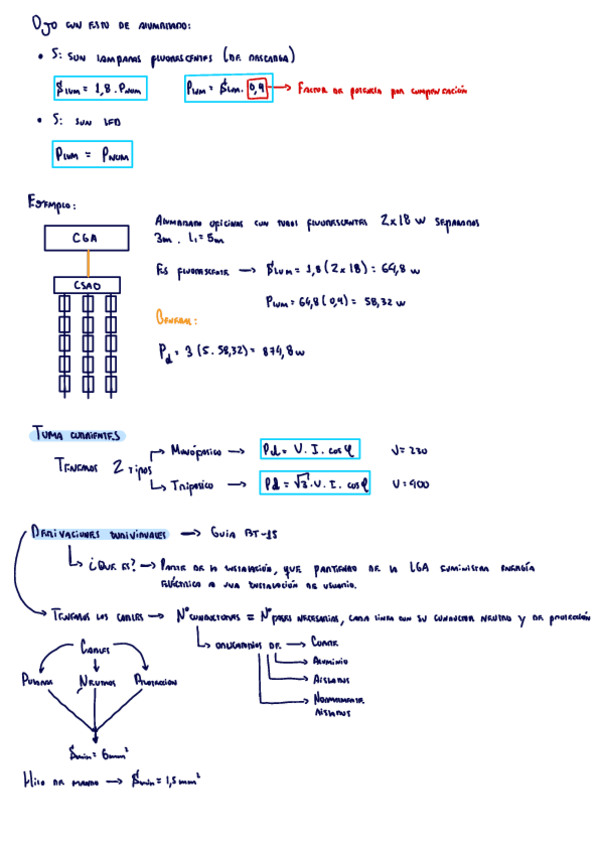 OJO CON ESTO DE ALUMBRADO:
• Si SON LAMPARAS FLUORESCENTES (DE DESCARGA)
S LUM = 1,8 · P NUM
P LUM = S LUM · 0,9 → FACTOR DE POTENCIA POR COMPENSACIÓN
• Si SON LED
P LUM = P NUM
EJEMPLO:
CGA
CSAO
ALUMBRADO OFICINAS CON TUBOS FLUORESCENTES 2x18 W SEPARADOS
3m. L1 = 5m
ES FLUORESCENTE → S LUM = 1,8 (2x18) = 64,8 W
P LUM = 64,8 (0,9) = 58,32 W
GENERAL:
Pd = 3 (5 · 58,32) = 874,8 W
TOMA CORRIENTES
TENEMOS 2 TIPOS
MONOFASICO → Pd = V. I. cos φ U = 230
TRIFASICO → Pd = √3 · V. I. cos φ U = 400
DERIVACIONES INDIVIDUALES → GUIA BT-15
¿QUE ES? → PARTE DE LA INSTALACIÓN, QUE PARTIENDO DE LA LGA SUMINISTRA ENERGÍA
ELÉCTRICA A UNA INSTALACIÓN DE USUARIO.
TENEMOS LOS CABLES → Nº CONDUCTORES = Nº FASES NECESARIAS, CADA LINEA CON SU CONDUCTOR NEUTRO Y DE PROTECCIÓN
CABLES
NEUTROS PROTECCION
COBRE
ALUMINIO
AISLADOS
NORMALMENTE
AISLADOS
S min = 6 mm²
HILO DE MANDO → S min = 1,5 mm²